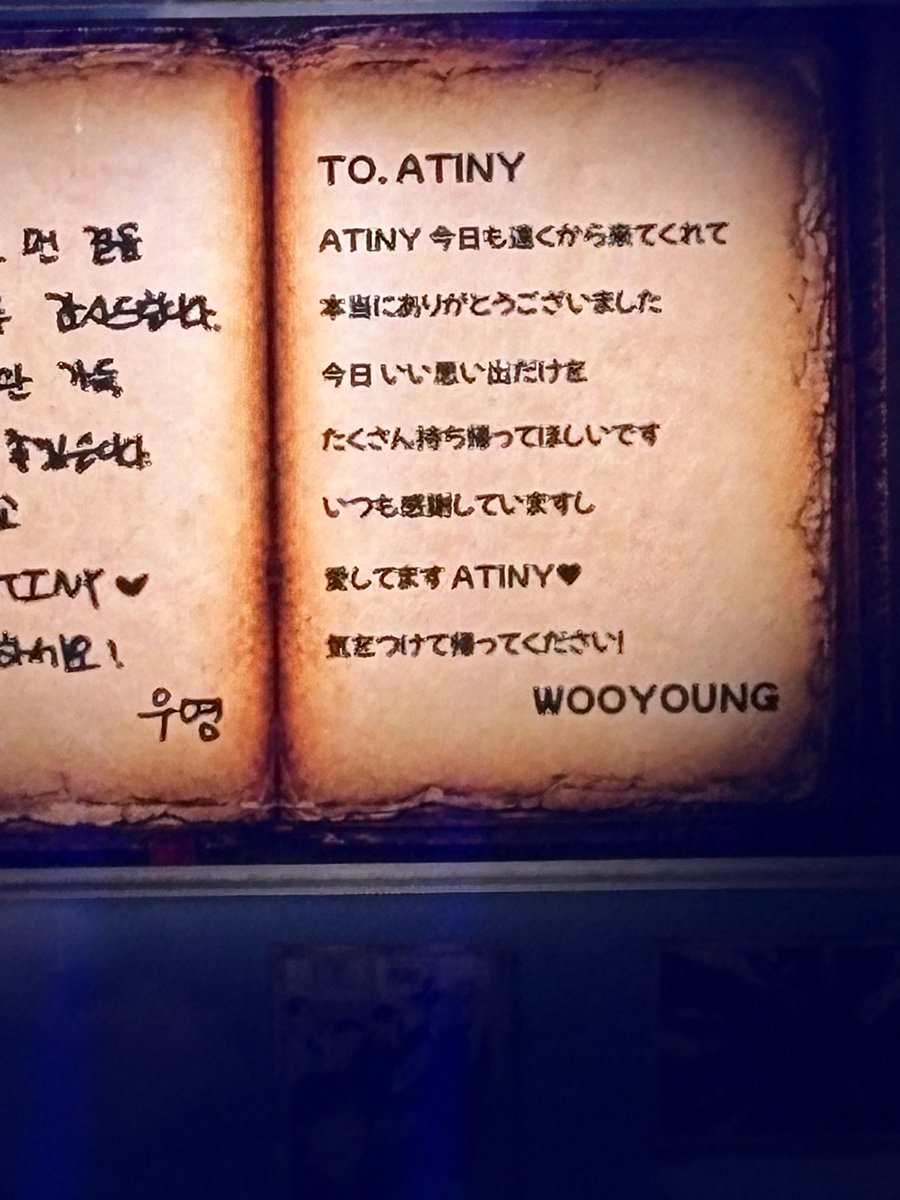 먼 길을
감사드립니다.
TINY ♥
하세요!
우영
TO. ATINY
ATINY 今日も遠くから来てくれて
本当にありがとうございました
今日 いい思い出だけを
たくさん持ち帰ってほしいです
いつも感謝していますし
愛してます ATINY♥
気をつけて帰ってください!
WOOYOUNG